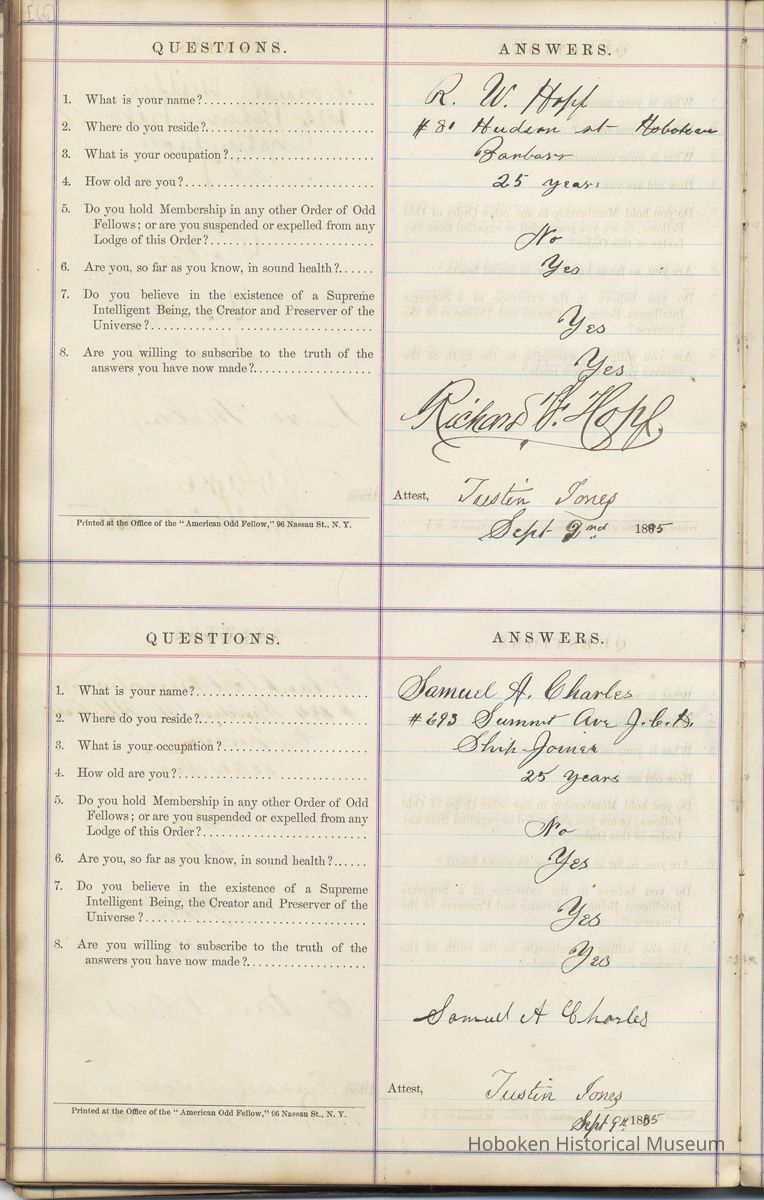 QUESTIONS. ANSWERS.
1. What is your name? R. W. Hopf
2. Where do you reside? #80 Hudson st Hoboken
3. What is your occupation? Barbarr
4. How old are you? 25 years
5. Do you hold Membership in any other Order of Odd
Fellows; or are you suspended or expelled from any
Lodge of this Order? No
6. Are you, so far as you know, in sound health? Yes
7. Do you believe in the existence of a Supreme
Intelligent Being, the Creator and Preserver of the
Universe? Yes
8. Are you willing to subscribe to the truth of the Yes
answers you have now made?
Richard W. Hopf.
Attest, Justin Jones
Printed at the Office of the "American Odd Fellow," 96 Nassau St., N. Y. Sept 2nd 1885
QUESTIONS. ANSWERS.
1. What is your name? Samuel A. Charles
2. Where do you reside? #693 Summit Ave J.C.H.
3. What is your occupation? Ship Joiner
4. How old are you? 25 Years
5. Do you hold Membership in any other Order of Odd
Fellows; or are you suspended or expelled from any
Lodge of this Order? No
6. Are you, so far as you know, in sound health? Yes
7. Do you believe in the existence of a Supreme
Intelligent Being, the Creator and Preserver of the
Universe? Yes
8. Are you willing to subscribe to the truth of the
answers you have now made? Yes
Samuel A Charles
Attest, Justin Jones
Printed at the Office of the "American Odd Fellow," 96 Nassau St., N. Y. Sept 9th 1885
Hoboken Historical Museum